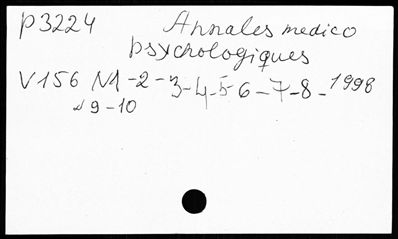 P3224 Annales medico
psychologiques
V156 N1-2-3-4-5-6-7-8-1998
N9-10